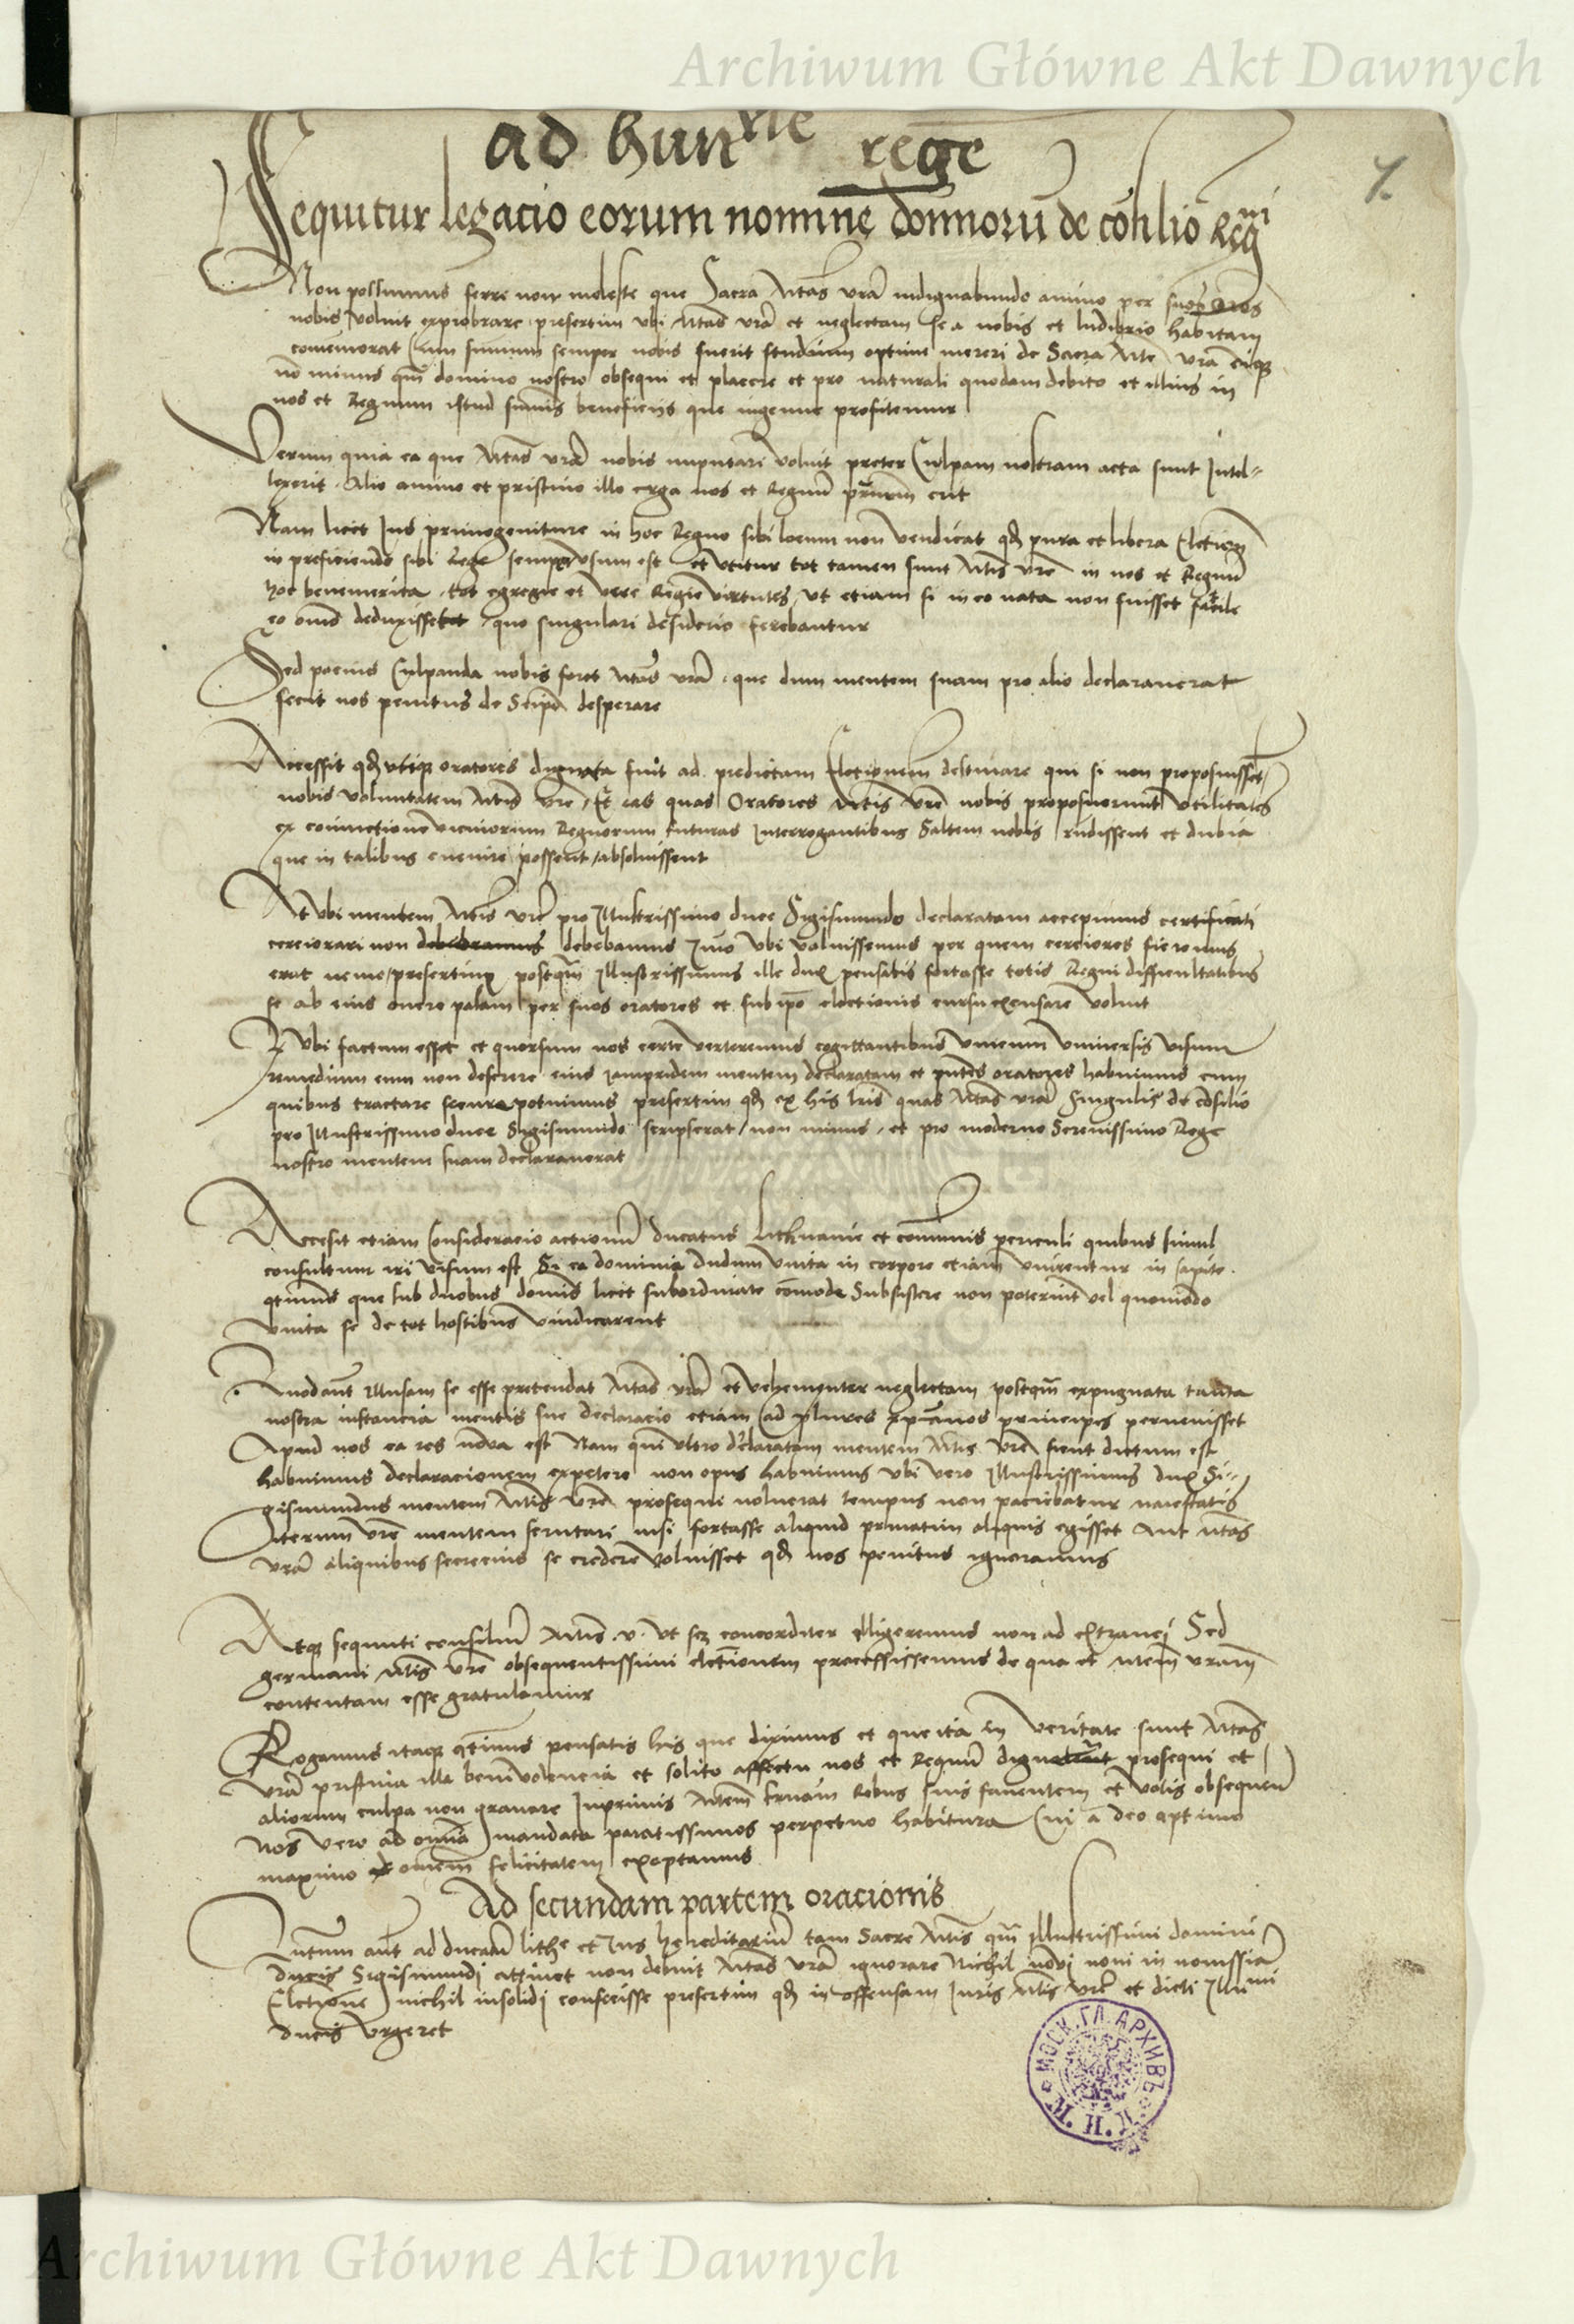 Archiwum Główne Akt Dawnych
7.
ad hunrie regē
Sequitur legacio eorum nomine donnorū de conlio Regni
Non possumus ferre non moleste que Sacra Mtas vrā indignabundo animo per suos orōs
nobis voluit exprobrare presertim vbi Mtas vrā et neglectam se a nobis et ludibrio habitam
comemorat Cum summum semper nobis fuerit studium optime mereri de Sacra Mte vrā eiqȝ
nō minus qm̄ domino nostro obsequi et placere et pro naturali quodam debito et illius in
nos et Regnum istud summis beneficijs que ingenue profitemur
Verum quia ea que Mtas vrā nobis imputari voluit preter Culpam nostram acta sunt Intel-
lexerit Alio animo et pristino illo erga nos et Regnū erit
Nam licet Ius primogeniture in hoc Regno sibi locum non vendicat qd pura et libera Election
in preficiendo sibi Rege semper vsum est et vtitur tot tamen sunt Mtis vrē in nos et Regnū
hoc benemerita tot egregie et vere Regie virtutes vt etiam si in eo nata non fuisset facile
eo omēs deduxisset quo singulari desiderio ferebantur
Sed pocius Culpanda nobis foret Mtas vrā que dum mentem suam pro alio declarauerat
fecit nos penitus de Seipā desperare
Accessit qd vtiqȝ oratores dignata fuit ad predictam Electionem destinare qui si non proposuissēt
nobis voluntatem Mtis vrē Et eas quas Oratores Mtis vrē nobis proposuerunt vtilitates
ex coniunctione vicinorum Regnorum futuras Interrogantibus Saltem nobis rn̄dissent et dubia
que in talibus euenire possent absoluissent
At vbi mentem Mtis vrē pro Illustrissimo duce Sigismundo declaratam accepimus certificati
cerciorari non debebamus debebamus Imo vbi voluissemus per quem cerciores fieremus
erat nemo presertim posteqm̄ Illustrissimus ille dux pensatis fortasse totis Regni difficultatibus
se ab eius onere palam per suos oratores et sub ipō electionis cursu excusare voluit
Vbi factum esset et quorsum nos certe verteremus cogittantibus vnicum vniuersis visum
remedium eum non deserere eius iampridem mentem declaratam et pn̄tes oratores habuimus cum
quibus tractare secure potuimus presertim qd ex his lrīs quas Mtas vrā Singulis de cōsilio
pro Illustrissimo duce Sigismundo scripserat non minus et pro moderno Serenissimo Rege
nostro mentem suam declarauerat
Accesit etiam Consideracio actionū ducatus Lithuanie et comūnis periculi quibus simul
consultum iri visum est Si ea dominia dudum vnita in corpore etiam vnirentur in capite
qtinus que sub duobus domīs licet subordinate comode Subsistere non poterint vel quomodo
vnita se de tot hostibus vindicarent
Quodaūt illusam se esse pretendat Mtas vrā et vehementer neglectam postqm̄ expugnata tanta
nostra instancia mentis sue declaracio etiam ad plures xpiānos principes peruenisset
Apud nos ea res noua est Nam qui vltro declaratam mentem Mtis vrē sicut dictum est
habuimus declaracionem expetere non opus habuimus vbi vero Illustrissimus dux Si-
gismundus mentem Mtis vrē prosequi noluerat tempus non paciebatur maiestatis
iterum vrē mentem scrutari nisi fortasse aliquid priuatim aliquis egisset Aut Mtas
vrā aliquibus secrecius se credere voluisset qd nos penitus ignoramus
Atqȝ sequuti consiliū Mtis v. vt scȝ concorditer elligeremus non ad extranei Sed
germani Mtis vrē obsequentissimi electionem processissemus de qua et Mtem vram
contentam esse gratulamur
Rogamus itaqȝ qtinus pensatis his que diximus et que ita in veritate sunt Mtas
vrā pristina illa beniuolencia et solito affectu nos et Regnū prosequi et
aliorum culpa non grauare Inprimis Mtem suam Rebus suis fauentem et votis obsequen
Nos vero ad omnia mandata paratissimos perpetuo habitura Cui a deo optimo
maximo omem felicitatem exoptamus
Ad secundam partem oracionis
Quantum aūt ad ducatū lithe et Ius hereditariū tam Sacre Mtis qm̄ Illustrissimi domini
ducis Sigismundi attinet non debuit Mtas vrā ignorare Nichil noui in nouissīa
Electione nichil insolidi confecisse presertim qd in offensam Iuris Mtis vrē et dicti Illmi
ducis vrgeret
МОСК. ГЛ. АРХИВЪ
М. И. Д.
Archiwum Główne Akt Dawnych